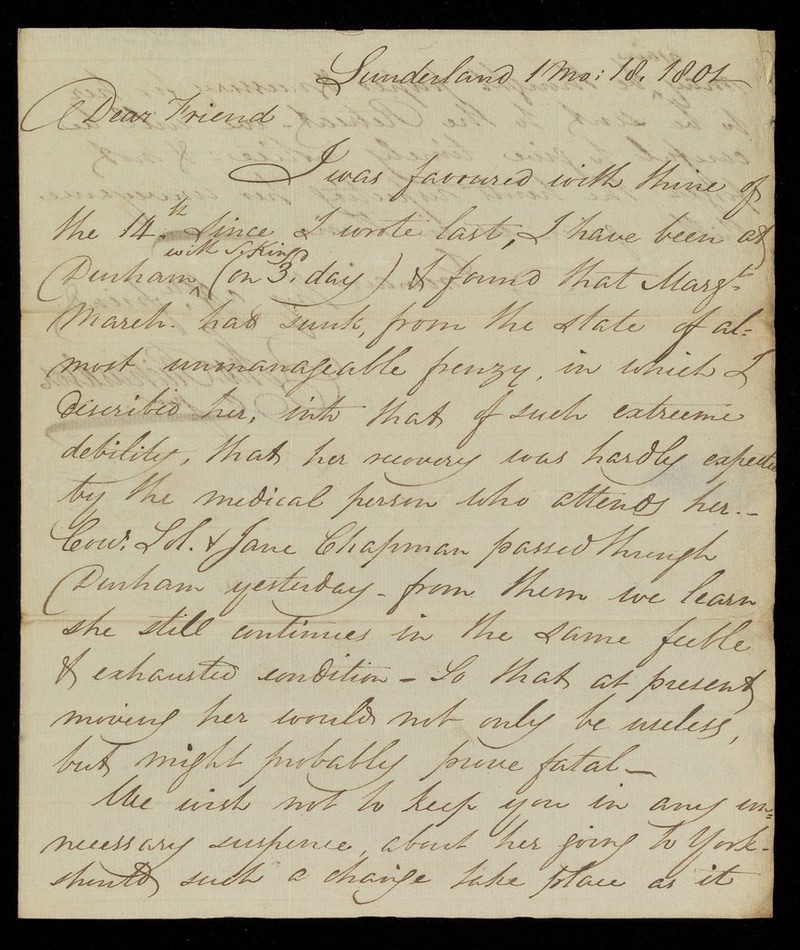 Sunderland 1 Mo: 18. 1801
Dear Friend
I was favoured with thine of
the 14th. Since I wrote last, I have been at
with S. King
Durham ^ (on 3. day) & found that Margt.
March. had sunk, from the state of al=
most unmanageable frenzy, in which I
described her, into that of such extreeme
debility, that her recovery was hardly expected
by the medical person who attends her.-
Cous. Sol. & Jane Chapman passed through
Durham yesterday - from them we learn
she still continues in the same feeble
& exhausted condition - So that at present
moving her would not only be useless,
but might probably prove fatal -
We wish not to keep you in any un=
necessary suspence, about her going to York-
should such a change take place as it